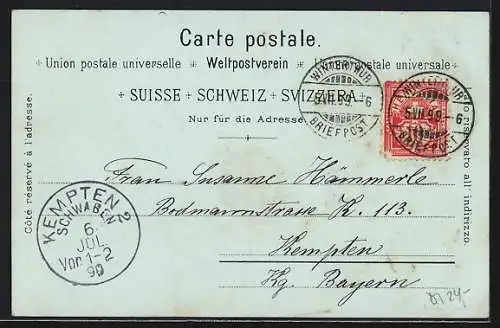 Carte postale.
Union postale universelle Weltpostverein Unione postale universale
SUISSE SCHWEIZ SVIZZERA
Nur für die Adresse
Côté réservé à l'adresse.
Lato riservato all' indirizzo.
WINTERTHUR
5 VII 99. -6
BRIEFPOST
WINTERTHUR
5 VII 99. -6
BRIEFPOST
Frau Susanne Hämmerle
Bodmannstrasse K. 113.
Kempten
Kg. Bayern
KEMPTEN 2
SCHWABEN
6.
JUL.
Vor. 1-2
99